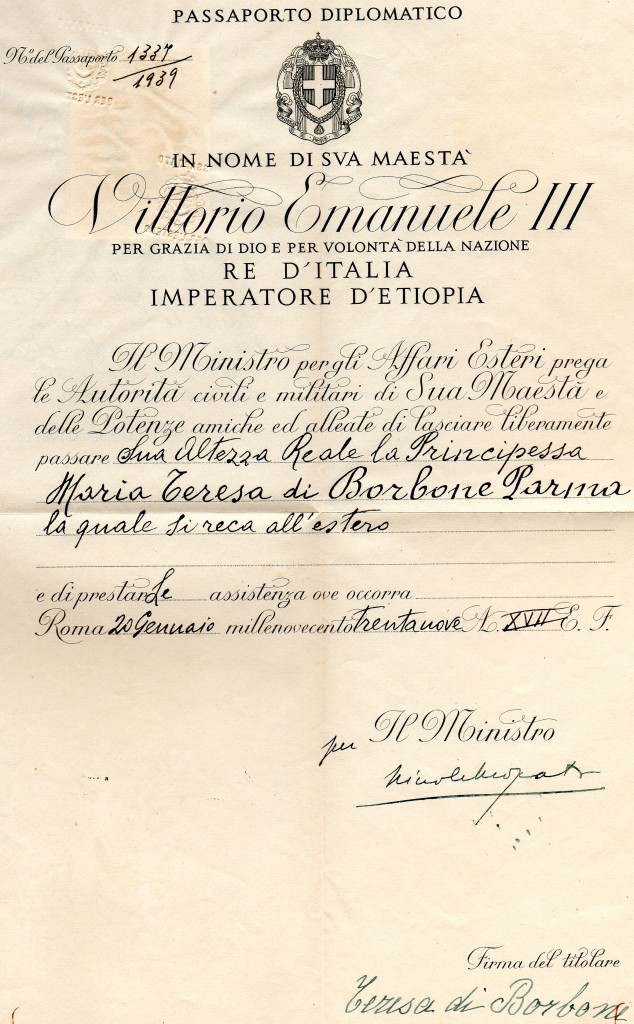 PASSAPORTO DIPLOMATICO
N.º del Passaporto 1337
1939
IN NOME DI SVA MAESTÀ
Vittorio Emanuele III
PER GRAZIA DI DIO E PER VOLONTÀ DELLA NAZIONE
RE D'ITALIA
IMPERATORE D'ETIOPIA
Il Ministro per gli Affari Esteri prega
le Autorità civili e militari di Sua Maestà e
delle Potenze amiche ed alleate di lasciare liberamente
passare Sua Altezza Reale la Principessa
Maria Teresa di Borbone Parma
la quale si reca all'estero
e di prestarLe assistenza ove occorra
Roma 20 Gennaio millenovecentotrentanove A. XVII E. F.
per Il Ministro
Firma del titolare
Teresa di Borbone